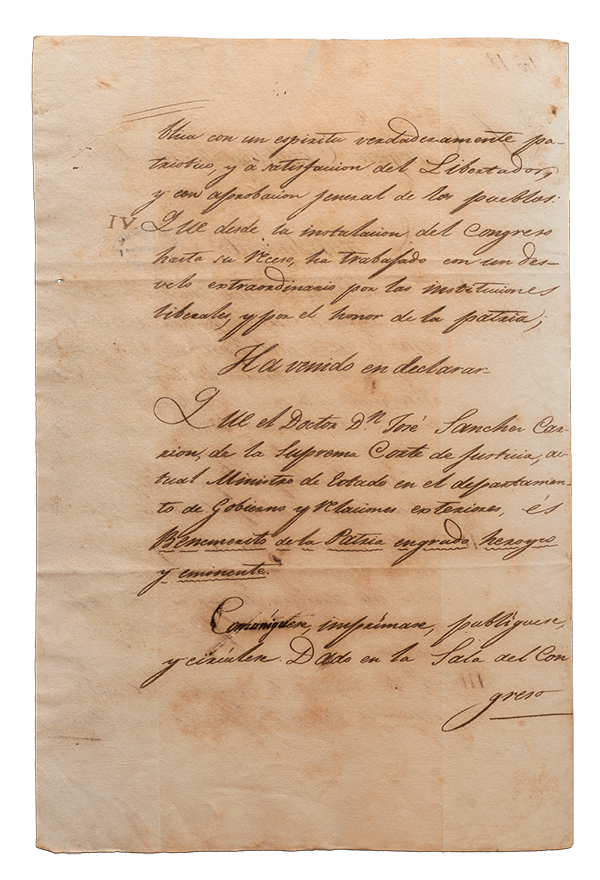 blica con un espiritu verdaderamente pa-
triotico, y à satisfaccion del Libertador,
y con aprobacion jeneral de los pueblos:
IV. Que desde la instalacion del Congreso
hasta su receso, ha trabajado con un des-
velo extraordinario por las instituciones
liberales, y por el honor de la patria;
Ha venido en declarar-
Que el Doctor Dn José Sanchez Car-
rion, de la Suprema Corte de Justicia, ac-
tual Ministro de Estado en el departamen-
to de Gobierno y relaciones exteriores, és
Benemerito de la Patria en grado heroyco
y eminente.
Comuníquese, imprímase, publíquese,
y circúlese. Dado en la Sala del Con
greso
III